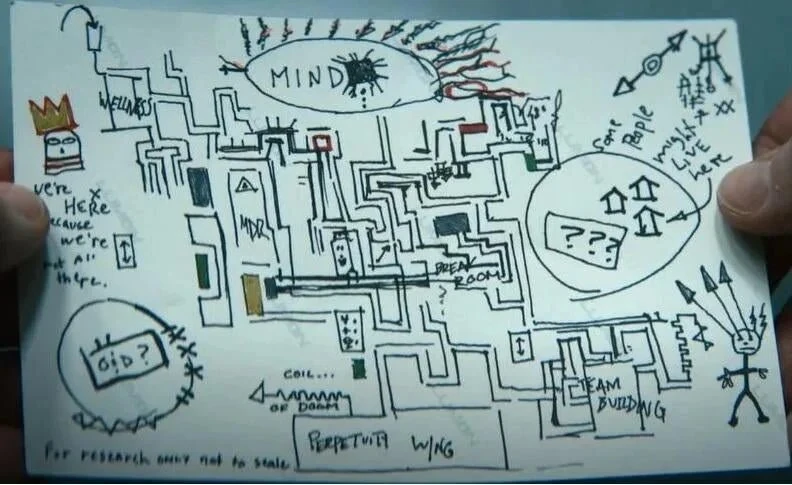 MIND
WELLNESS
Some
People
might
LIVE
here
XX
we're
HERE
because
we're
not All
there.
MDR
???
BREAK
ROOM
?
O&D?
COIL...
OF DOOM
TEAM
BUILDING
PERPETUITY WING
For research only not to scale.
LUMON